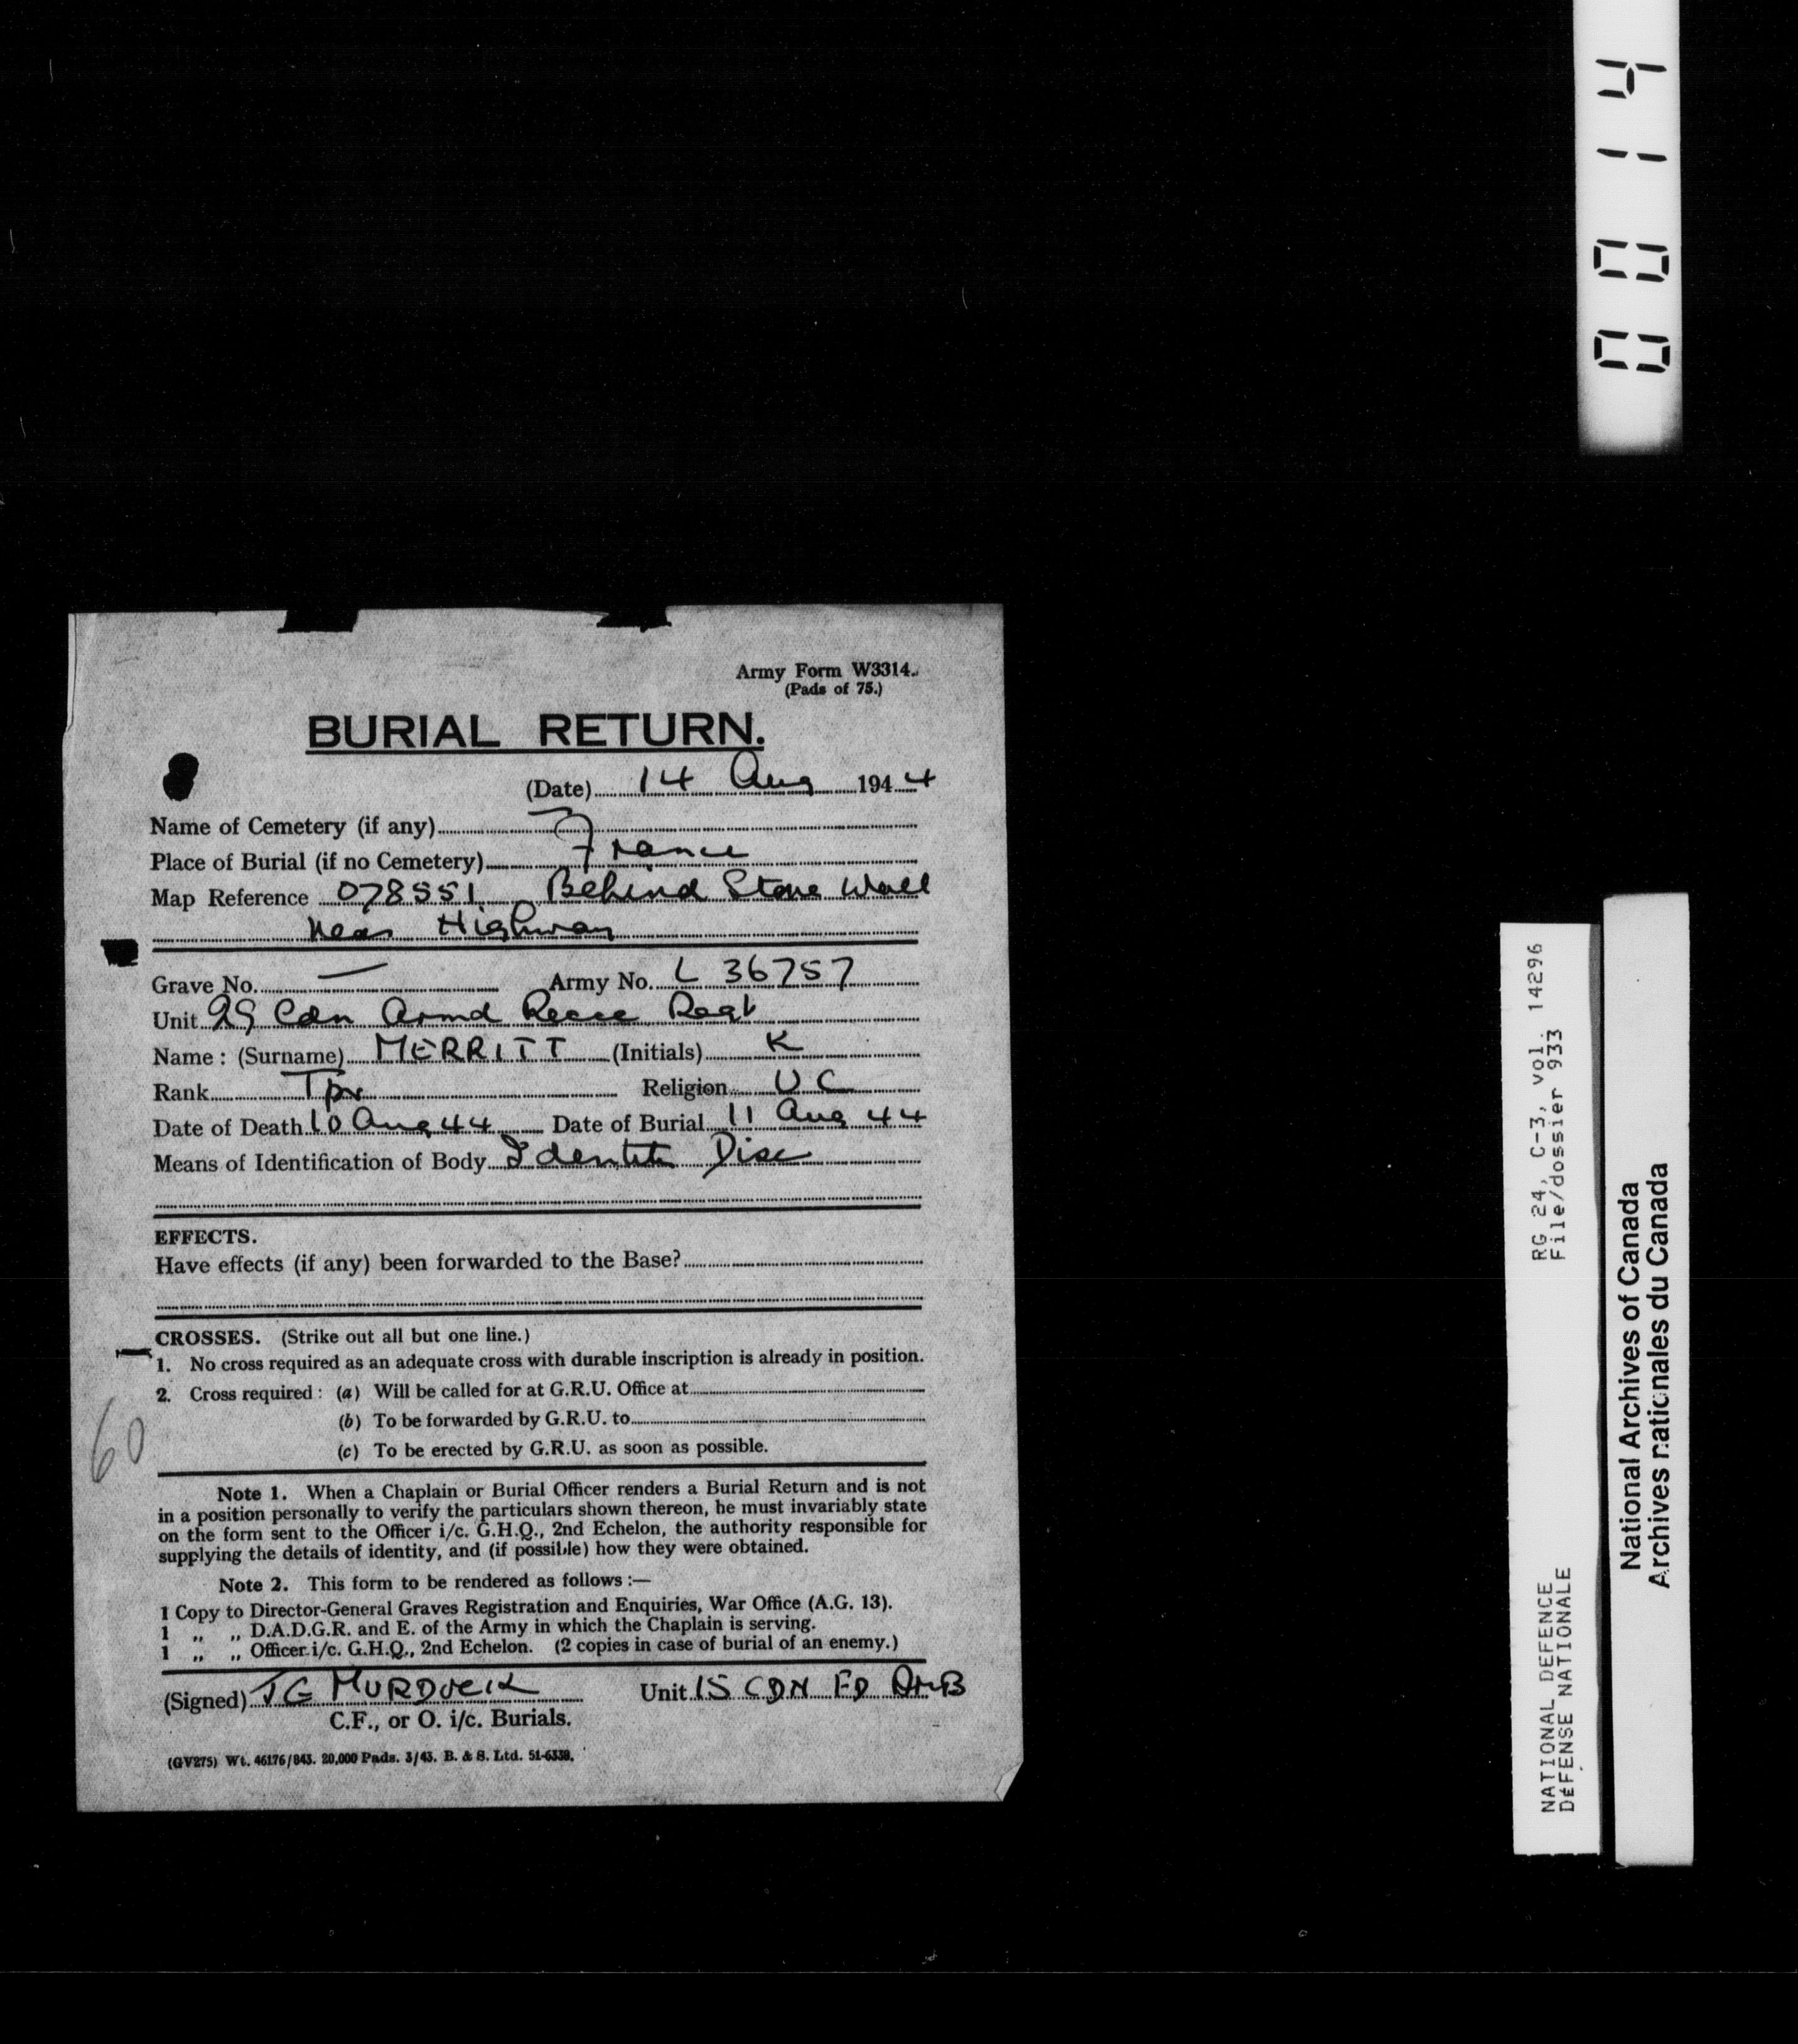 0014
Army Form W3314.
(Pads of 75.)
BURIAL RETURN.
(Date) 14 Aug 1944
Name of Cemetery (if any)
Place of Burial (if no Cemetery) France
Map Reference 078551 Behind Stone Wall
Near Highway
Grave No. — Army No. L 36757
Unit 29 Cdn Armd Recce Regt
Name : (Surname) MERRITT (Initials) K
Rank Tpr Religion UC
Date of Death 10 Aug 44 Date of Burial 11 Aug 44
Means of Identification of Body Identity Disc
EFFECTS.
Have effects (if any) been forwarded to the Base?
CROSSES. (Strike out all but one line.)
1. No cross required as an adequate cross with durable inscription is already in position.
2. Cross required : (a) Will be called for at G.R.U. Office at
(b) To be forwarded by G.R.U. to
(c) To be erected by G.R.U. as soon as possible.
60
Note 1. When a Chaplain or Burial Officer renders a Burial Return and is not
in a position personally to verify the particulars shown thereon, he must invariably state
on the form sent to the Officer i/c. G.H.Q., 2nd Echelon, the authority responsible for
supplying the details of identity, and (if possible) how they were obtained.
Note 2. This form to be rendered as follows :—
1 Copy to Director-General Graves Registration and Enquiries, War Office (A.G. 13).
1 „ „ D.A.D.G.R. and E. of the Army in which the Chaplain is serving.
1 „ „ Officer i/c. G.H.Q., 2nd Echelon. (2 copies in case of burial of an enemy.)
(Signed) JG MURDOCK Unit 15 CDN FD AMB
C.F., or O. i/c. Burials.
(GV275) Wt. 46176/843. 20,000 Pads. 3/43. B. & S. Ltd. 51-6338.
RG 24, C-3, vol. 14296
File/dossier 933
NATIONAL DEFENCE
DéFENSE NATIONALE
National Archives of Canada
Archives nationales du Canada